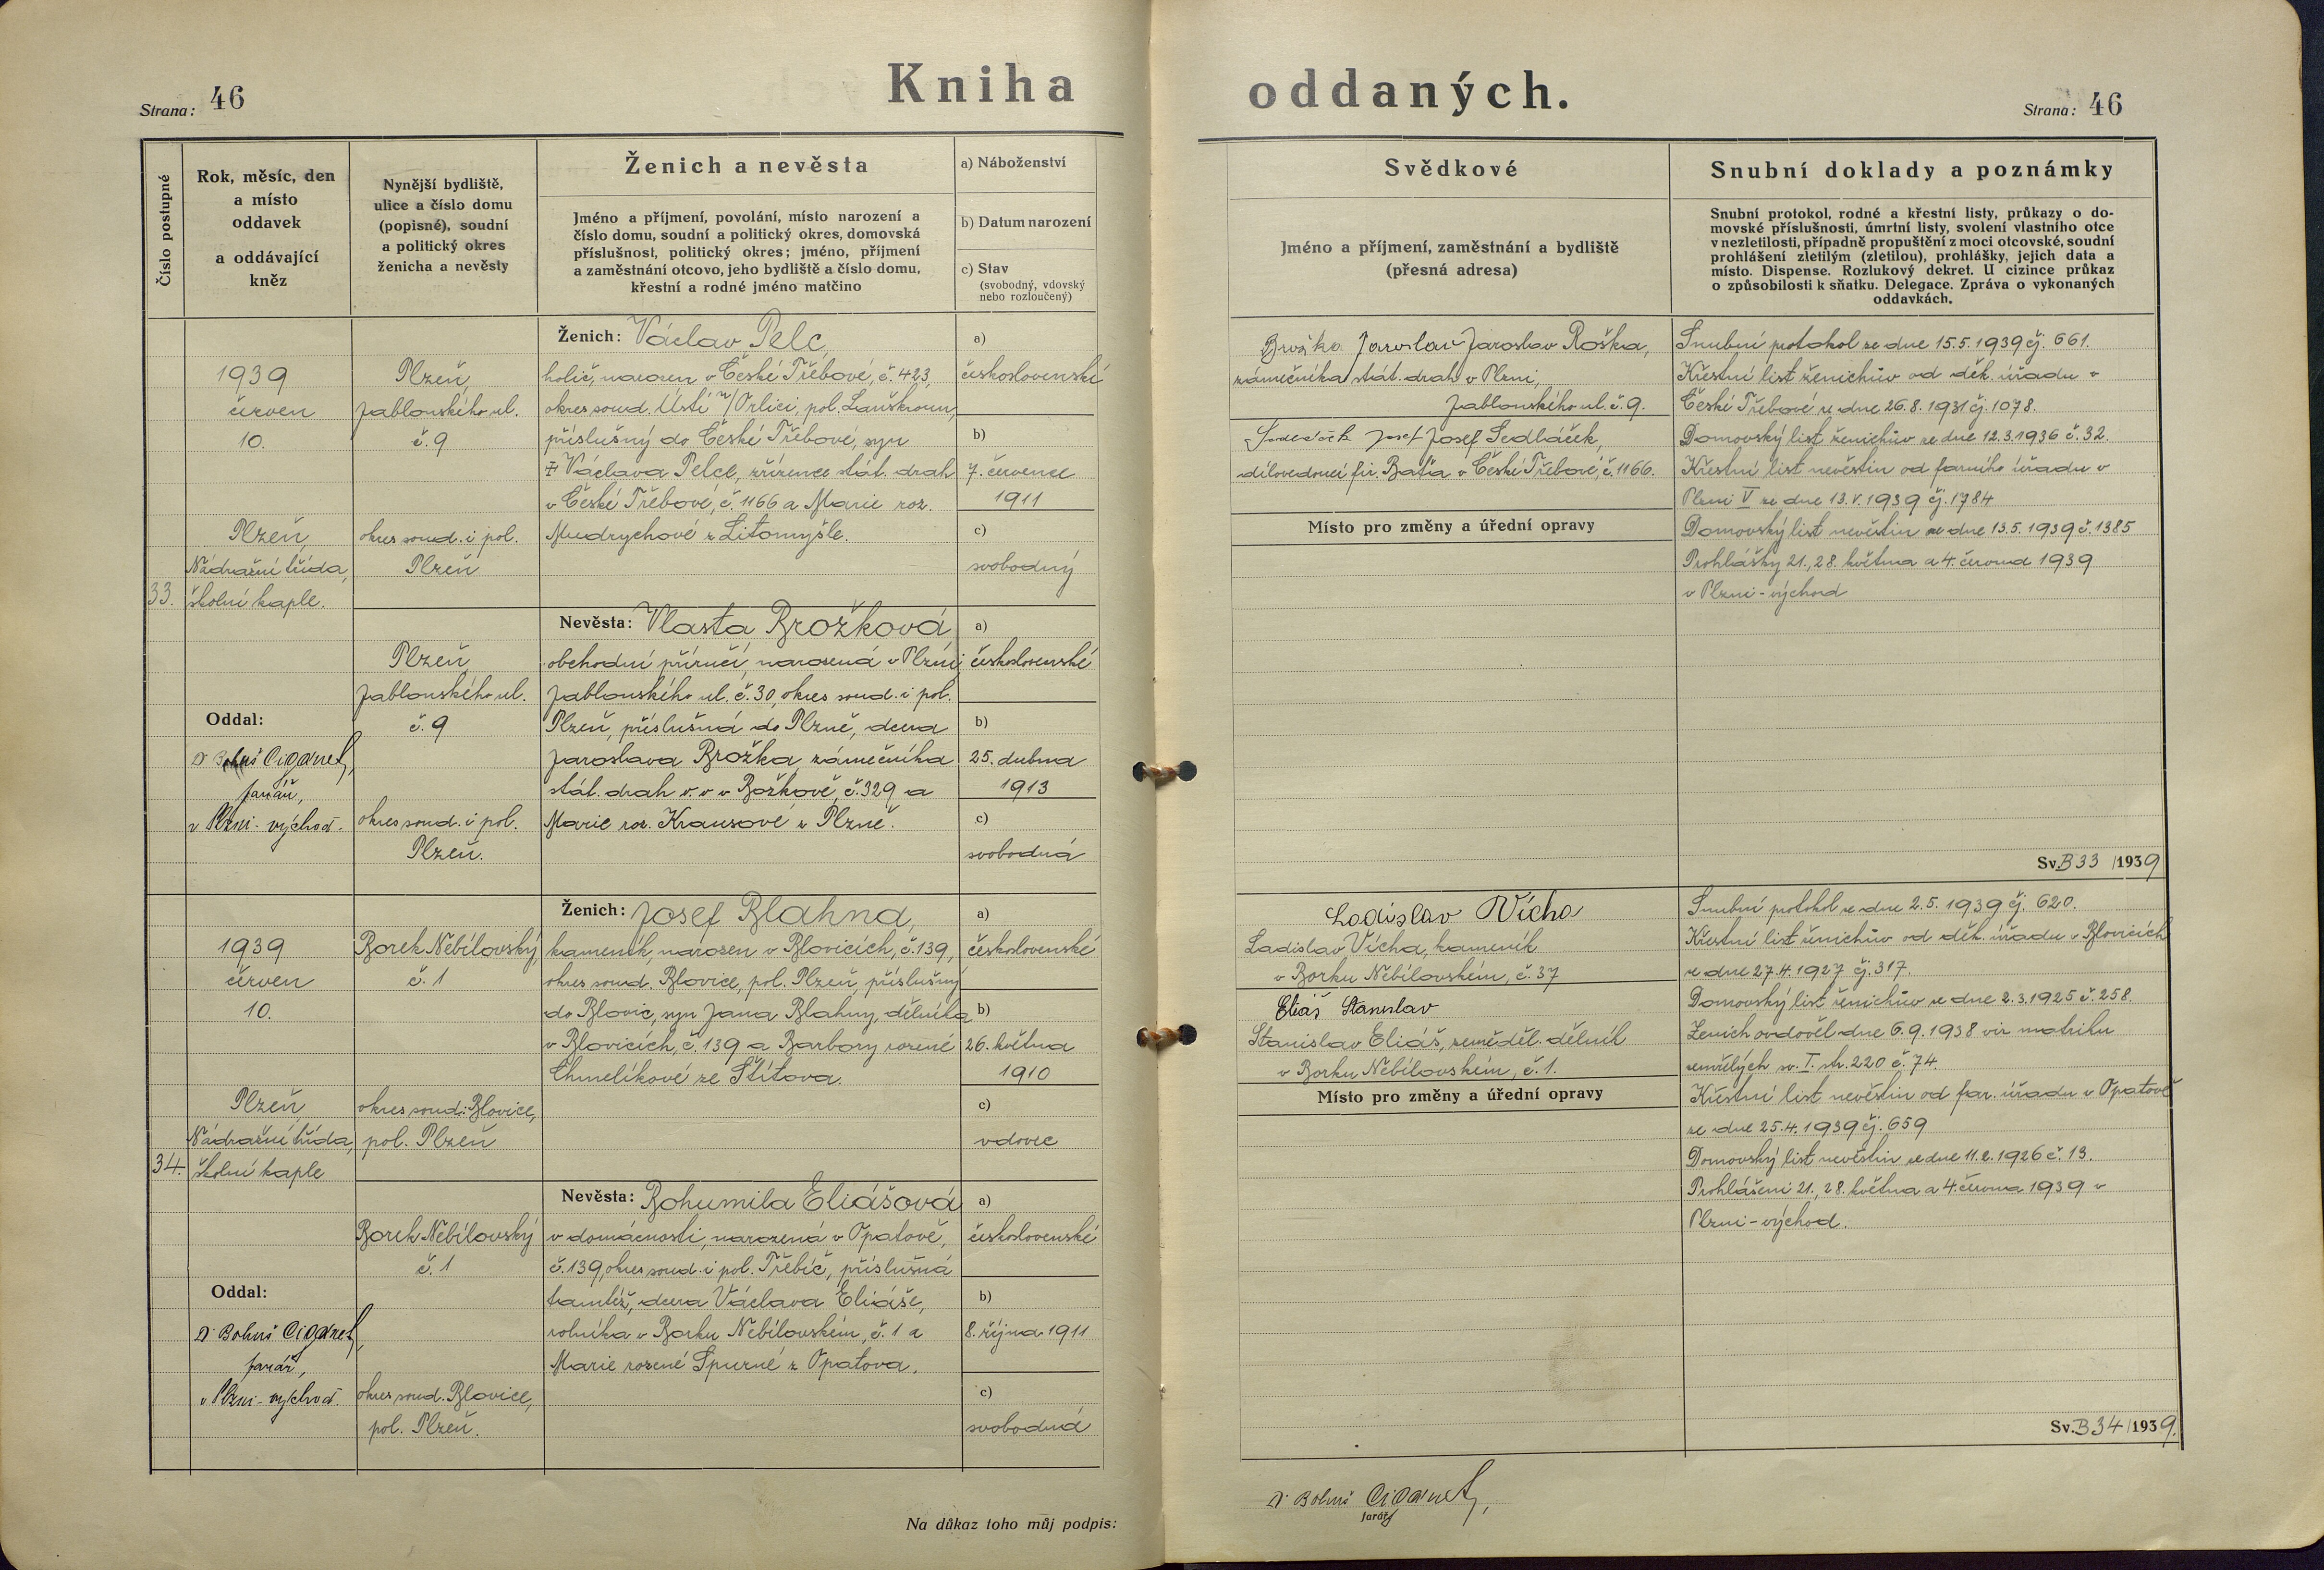 Strana: 46
Kniha oddaných.
Strana: 46
Číslo postupné
Rok, měsíc, den
a místo
oddavek
a oddávající
kněz
Nynější bydliště,
ulice a číslo domu
(popisné), soudní
a politický okres
ženicha a nevěsty
Ženich a nevěsta
Jméno a příjmení, povolání, místo narození a
číslo domu, soudní a politický okres, domovská
příslušnost, politický okres; jméno, příjmení
a zaměstnání otcovo, jeho bydliště a číslo domu,
křestní a rodné jméno matčino
a) Náboženství
b) Datum narození
c) Stav
(svobodný, vdovský
nebo rozloučený)
Svědkové
Jméno a příjmení, zaměstnání a bydliště
(přesná adresa)
Snubní doklady a poznámky
Snubní protokol, rodné a křestní listy, průkazy o do-
movské příslušnosti, úmrtní listy, svolení vlastního otce
v nezletilosti, případně propuštění z moci otcovské, soudní
prohlášení zletilým (zletilou), prohlášky, jejich data a
místo. Dispense. Rozlukový dekret. U cizince průkaz
o způsobilosti k sňatku. Delegace. Zpráva o vykonaných
oddavkách.
33.
1939
červen
10.
Plzeň,
Nádražní třída,
školní kaple.
Oddal:
Dr Bohuš Cigánek,
farář,
v Plzni-východ.
Plzeň,
Jablonského ul.
č. 9
okres soud. i pol.
Plzeň
Plzeň,
Jablonského ul.
č. 9
okres soud. i pol.
Plzeň.
Ženich: Václav Pelc,
holič, narozen v České Třebové, č. 423,
okres soud. Ústí n/Orlicí, pol. Lanškroun,
příslušný do České Třebové, syn
Václava Pelce, zřízence stát. drah
v České Třebové, č. 1166 a Marie roz.
Mudrychové z Litomyšle.
Nevěsta: Vlasta Brožková,
obchodní příručí, narozená v Plzni,
Jablonského ul. č. 30, okres soud. i pol.
Plzeň, příslušná do Plzně, dcera
Jaroslava Brožka, zámečníka
stát. drah v. v. v Božkově, č. 329 a
Marie roz. Krausové z Plzně.
a)
československé
b)
7. července
1911
c)
svobodný
a)
československé
b)
25. dubna
1913
c)
svobodná
Jaroslav Jaroslav
zámečníka stát. drah v Plzni,
Jablonského ul. č. 9.
Josef Josef Sedláček,
dílovedoucí fir. Baťa v České Třebové, č. 1166.
Místo pro změny a úřední opravy
Snubní protokol ze dne 15.5.1939 čj. 661.
Křestní list ženichův od děk. úřadu v
České Třebové ze dne 26.8.1931 čj. 1078.
Domovský list ženichův ze dne 12.3.1936 č. 32.
Křestní list nevěstin od farního úřadu v
Plzni V ze dne 13.V.1939 čj. 1784
Domovský list nevěstin ze dne 13.5.1939 č. 1385
Prohlášky 21., 28. května a 4. června 1939
v Plzni-východ
Sv. B 33 /1939
34.
1939
červen
10.
Plzeň
Nádražní třída,
školní kaple
Oddal:
Dr Bohuš Cigánek,
farář,
v Plzni-východ.
Borek Nebílovský
č. 1
okres soud. Blovice,
pol. Plzeň
Borek Nebílovský
č. 1
okres soud. Blovice,
pol. Plzeň.
Ženich: Josef Blahna,
kameník, narozen v Blovicích, č. 139,
okres soud. Blovice, pol. Plzeň, příslušný
do Blovic, syn Jana Blahny, dělníka
v Blovicích, č. 139 a Barbory rozené
Chmelíkové ze Štítova.
Nevěsta: Bohumila Eliášová
v domácnosti, narozená v Opatově,
č. 139, okres soud. i pol. Třebíč, příslušná
tamtéž, dcera Václava Eliáše,
rolníka v Borku Nebílovském, č. 1 a
Marie rozené Spurné z Opatova.
a)
československé
b)
26. května
1910
c)
vdovec
a)
československé
b)
8. října 1911
c)
svobodná
Ladislav Vícha
Ladislav Vícha, kameník
v Borku Nebílovském, č. 37
Eliáš Stanislav
Stanislav Eliáš, zeměděl. dělník
v Borku Nebílovském, č. 1.
Místo pro změny a úřední opravy
Snubní protokol ze dne 2.5.1939 čj. 620.
Křestní list ženichův od děk. úřadu v Blovicích
ze dne 27.4.1927 čj. 317.
Domovský list ženichův ze dne 2.3.1925 č. 258.
Ženich ovdověl dne 6.9.1938 viz matriku
zemřelých sv. I. str. 220 č. 74.
Křestní list nevěstin od far. úřadu v Opatově
ze dne 25.4.1939 čj. 659
Domovský list nevěstin ze dne 11.2.1926 č. 13.
Prohlášení 21., 28. května a 4. června 1939 v
Plzni-východ.
Sv. B 34 /1939.
Na důkaz toho můj podpis:
Dr Bohuš Cigánek,
farář